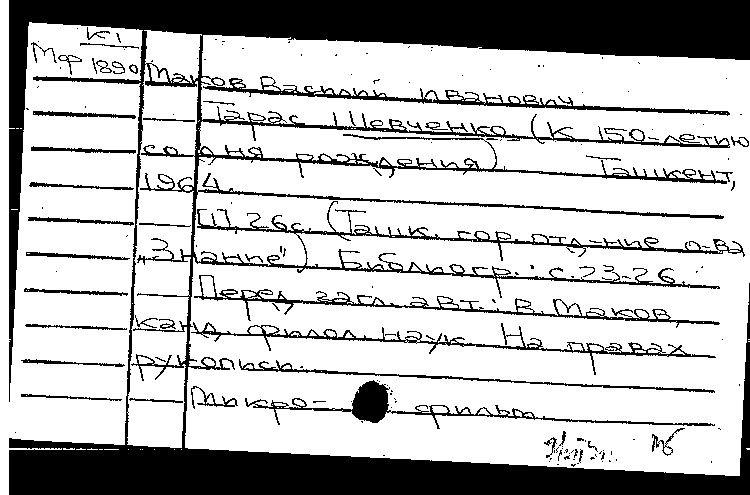 К1
Мф 1890 Маков, Василий Иванович.
Тарас Шевченко. (К 150-летию
со дня рождения). Ташкент,
1964.
[1], 26с. (Ташк. гор. отд-ние о-ва
„Знание"). Библиогр.: с.23-26.
Перед загл. авт.: В. Маков,
канд. филол. наук. На правах
рукописи.
Микро- фильм.